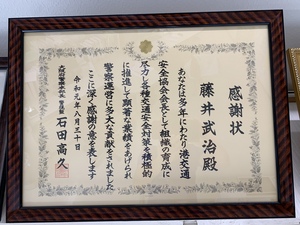 感謝状
藤井武治殿
あなたは多年にわたり港交通
安全協会会長として組織の育成に
尽力し各種交通安全対策を積極的
に推進して顕著な業績をあげられ
警察運営に多大な貢献をされました
ここに深く感謝の意を表します
令和元年八月三十日
大阪府警察本部長 警視監 石田高久